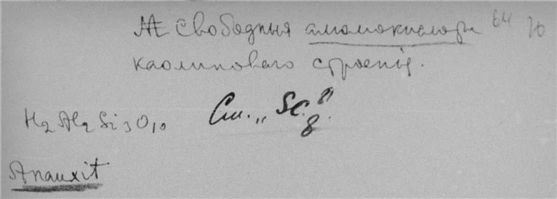 Свободныя алюмокислоты 64 70
каолиноваго строенія.
H2Al2Si3O10 См. „Sc. 8".
Anauxit